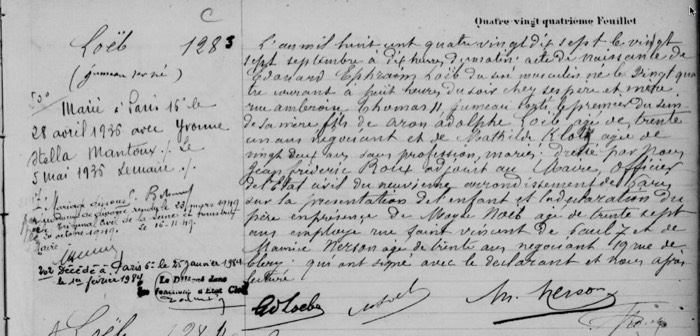 Quatre vingt quatrième Feuillet
Loëb 1283
(jumeau 1er né)
Marié à Paris 16e le
28 avril 1935 avec Yvonne
Stella Mantoux ./. Le
5 mai 1935
23 mars 1949
16-11-49
Décédé à Paris 5e le 25 janvier 1984
Le 1er février 1984
L'an mil huit cent quatre vingt dix sept le vingt
sept septembre à dix heures du matin : acte de naissance de
Edouard Ephraïm Loëb du sexe masculin né le vingt qua
tre courant à huit heures du soir chez ses père et mère
rue Ambroise Thomas 11, jumeau sorti le premier du sein
de sa mère fils de Aron Adolphe Loëb âgé de trente
un ans négociant et de Mathilde Klotz âgée de
vingt deux ans sans profession, mariés ; dressé par Nous
Jean Frédéric Roux adjoint au Maire, officier
de l'Etat civil du neuvième arrondissement de Paris
sur la présentation de l'enfant et la déclaration du
père en présence de âgé de trente sept
ans employé rue Saint Vincent de Paul 7 et de
Maurice Herson âgé de trente ans négociant 19 rue de
Cléry : qui ont signé avec le déclarant et Nous après
lecture
Ad Loëb M. Herson
Loëb